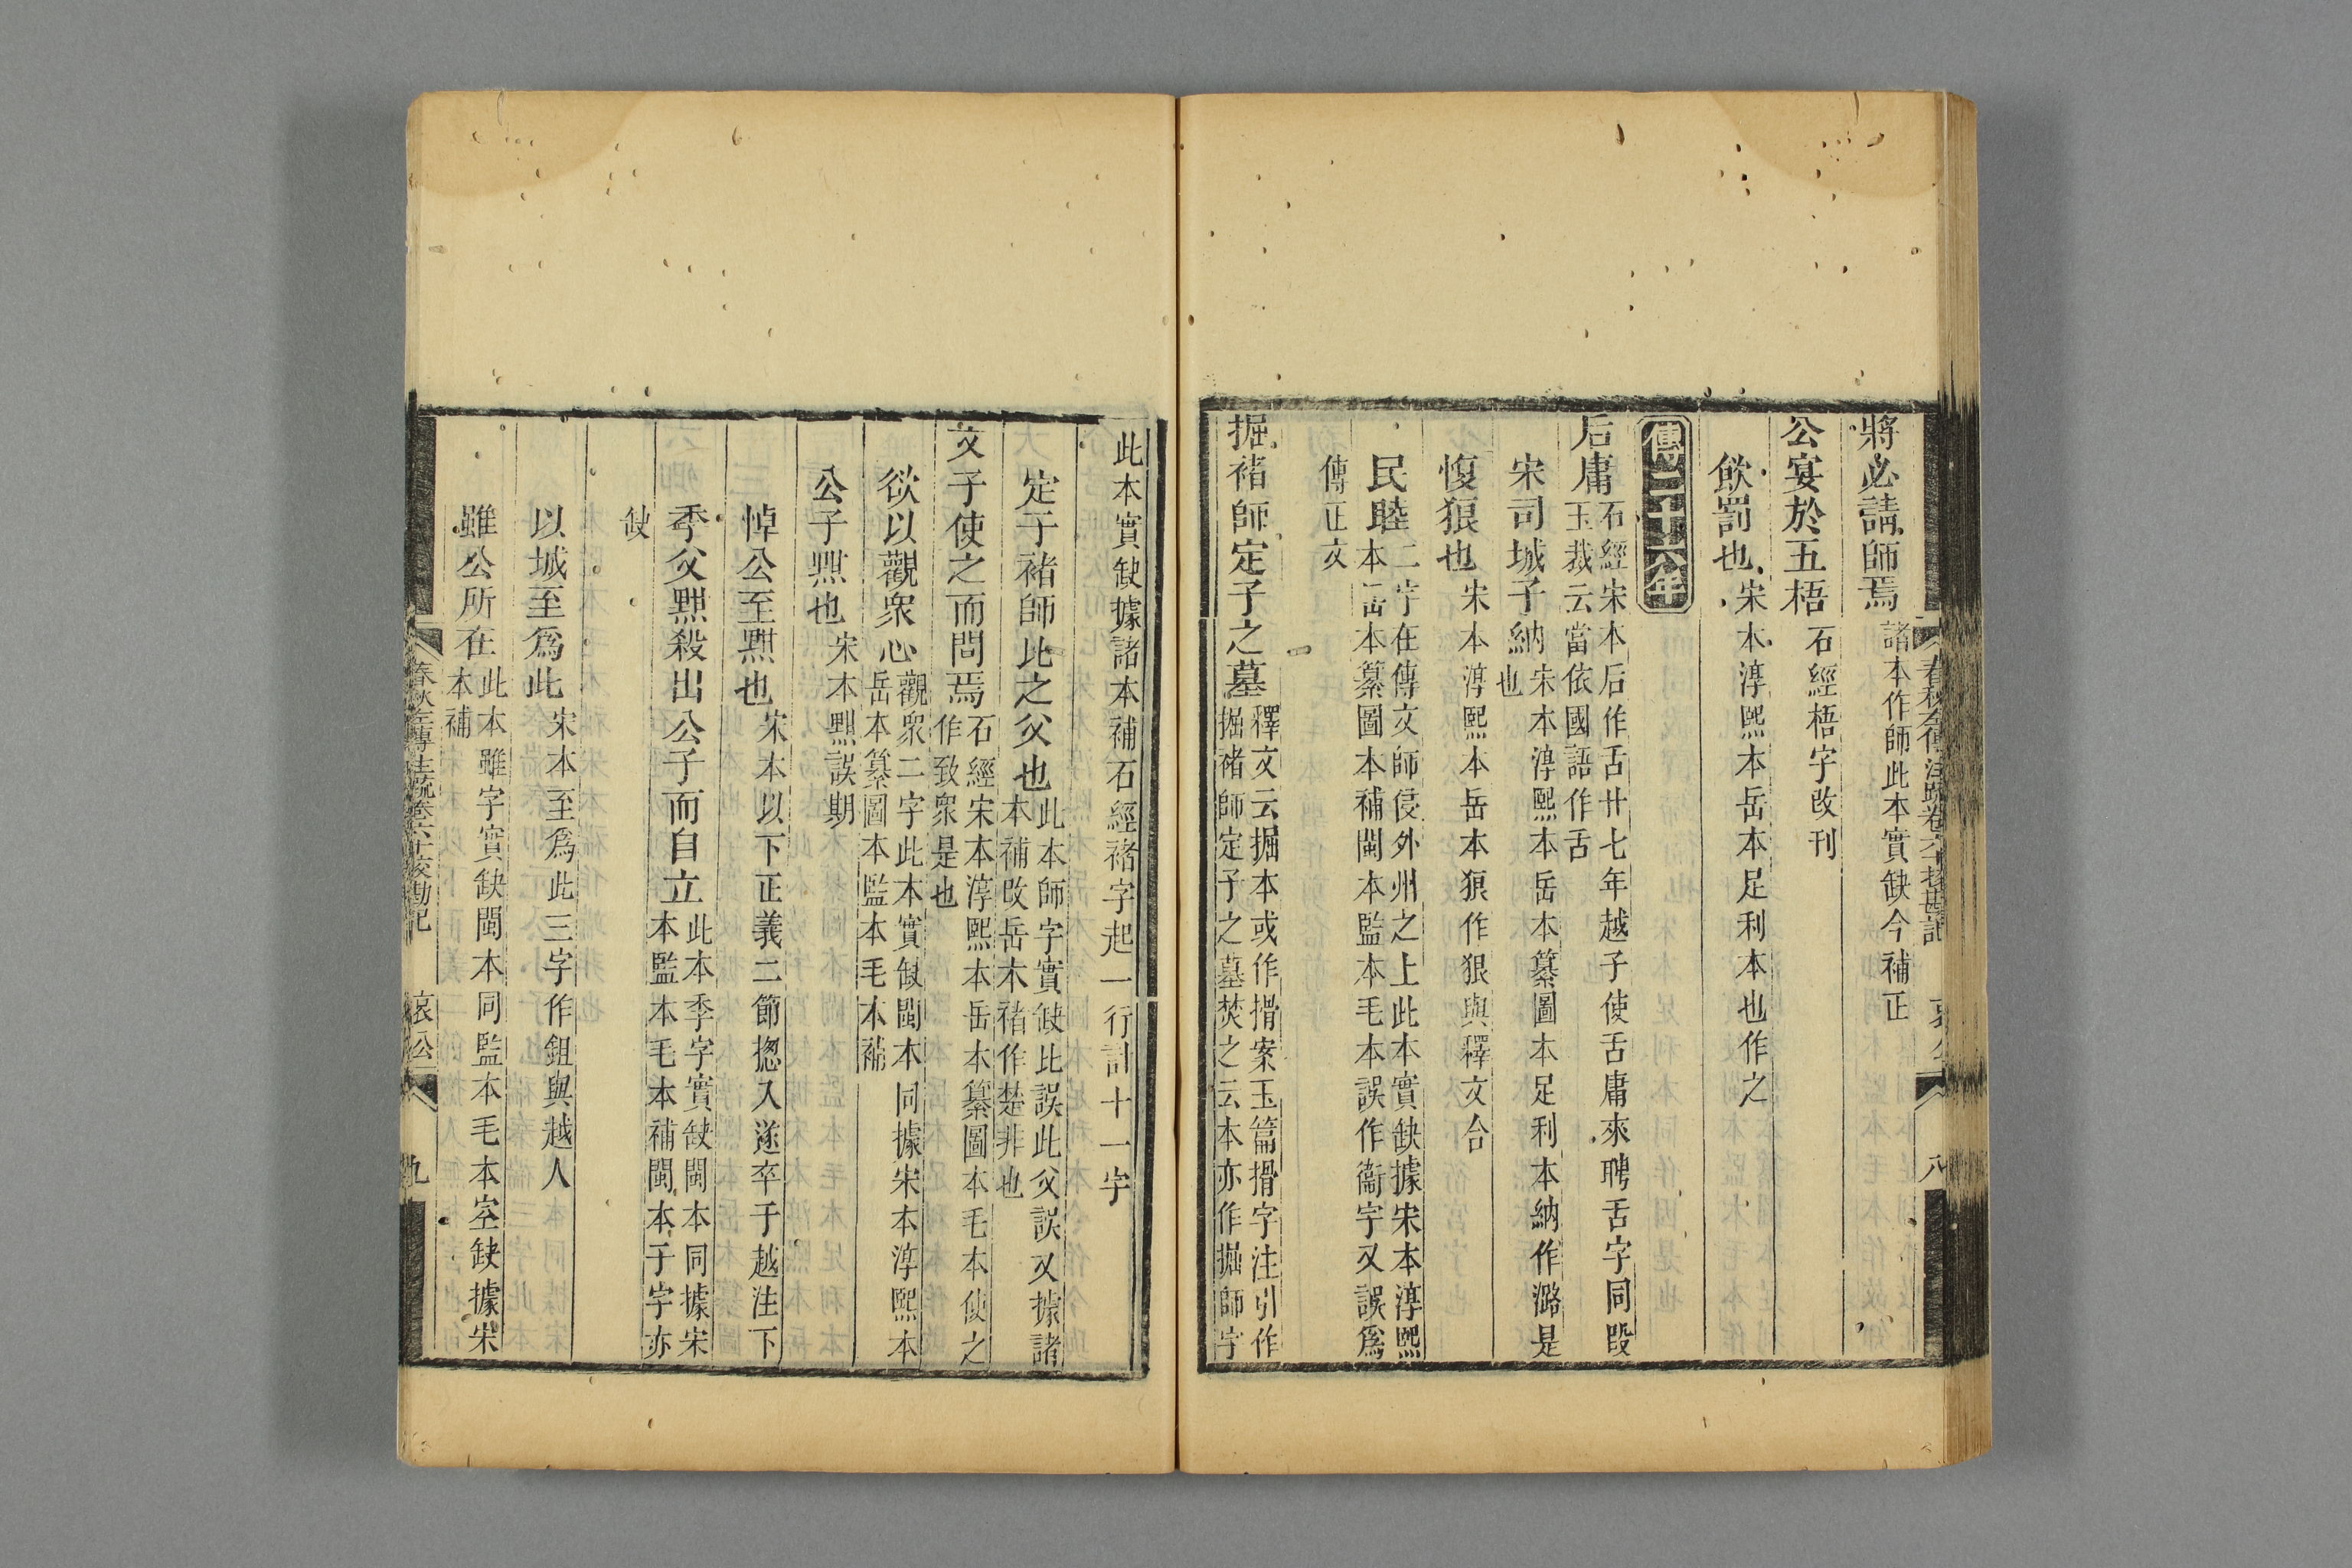 將必請師焉諸本作師此本實缺今補正
公宴於五梧石經梧字改刊
飲罰也宋本淳熙本岳本足利本也作之
傳二十六年
后庸石經宋本后作舌廿七年越子使舌庸來聘舌字同段
玉裁云當依國語作舌
宋司城子納宋本淳熙本岳本纂圖本足利本納作潞是
也
愎狠也宋本淳熙本岳本狠作很與釋文合
民睦二字在傳文師侵外州之上此本實缺據宋本淳熙
本岳本纂圖本補閩本監本毛本誤作衞宇又誤爲
傳正文
掘褚師定子之墓釋文云掘本或作搰案玉篇搰字注引作
掘褚師定子之墓焚之云本亦作掘師字
春秋左傳注疏卷六十挍勘記 哀公 八
此本實缺據諸本補石經褚字起一行計十一字
定子褚師比之父也此本師字實缺比誤此父誤又據諸
本補改岳本褚作楚非也
文子使之而問焉石經宋本淳熙本岳本纂圖本毛本使之
作致衆是也
欲以觀衆心觀衆二字此本實缺閩本同據宋本淳熙本
岳本纂圖本監本毛本補
公子黚也宋本黚誤期
悼公至黚也宋本以下正義二節揔入遂卒于越注下
季父黚殺出公子而自立此本季字實缺閩本同據宋
本監本毛本補閩本子字亦
缺
以城至爲此宋本至爲此三字作鉏與越人
雖公所在此本雖字實缺閩本同監本毛本空缺據宋
本補
春秋左傳注疏卷六十挍勘記 哀公 九